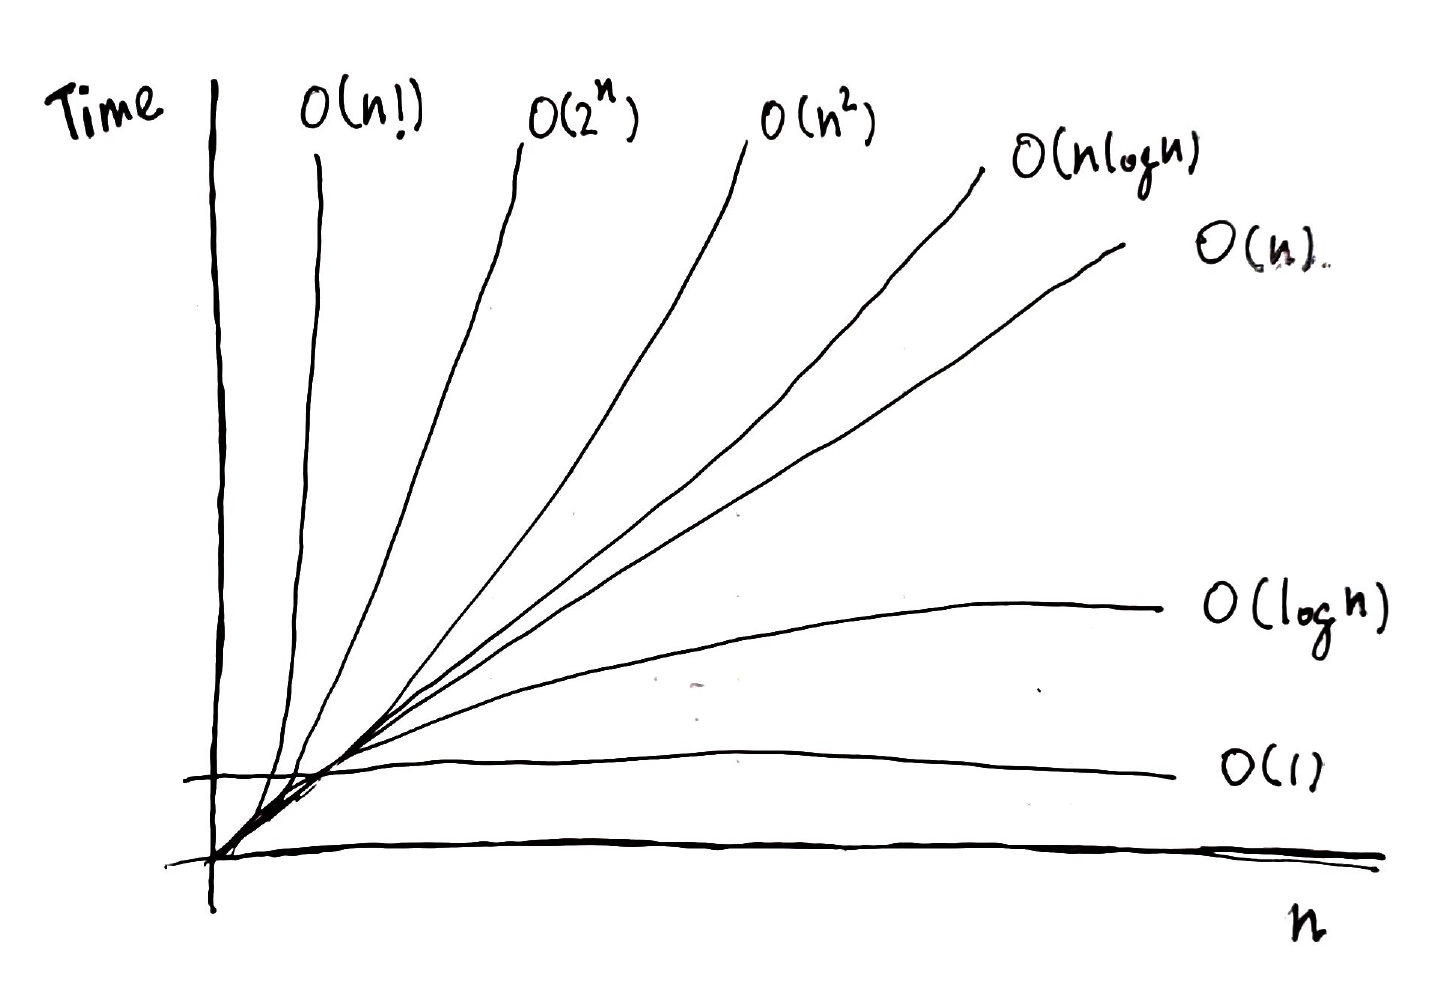 Time
O(n!)
O(2ⁿ)
O(n²)
O(nlogn)
O(n)
O(logn)
O(1)
n